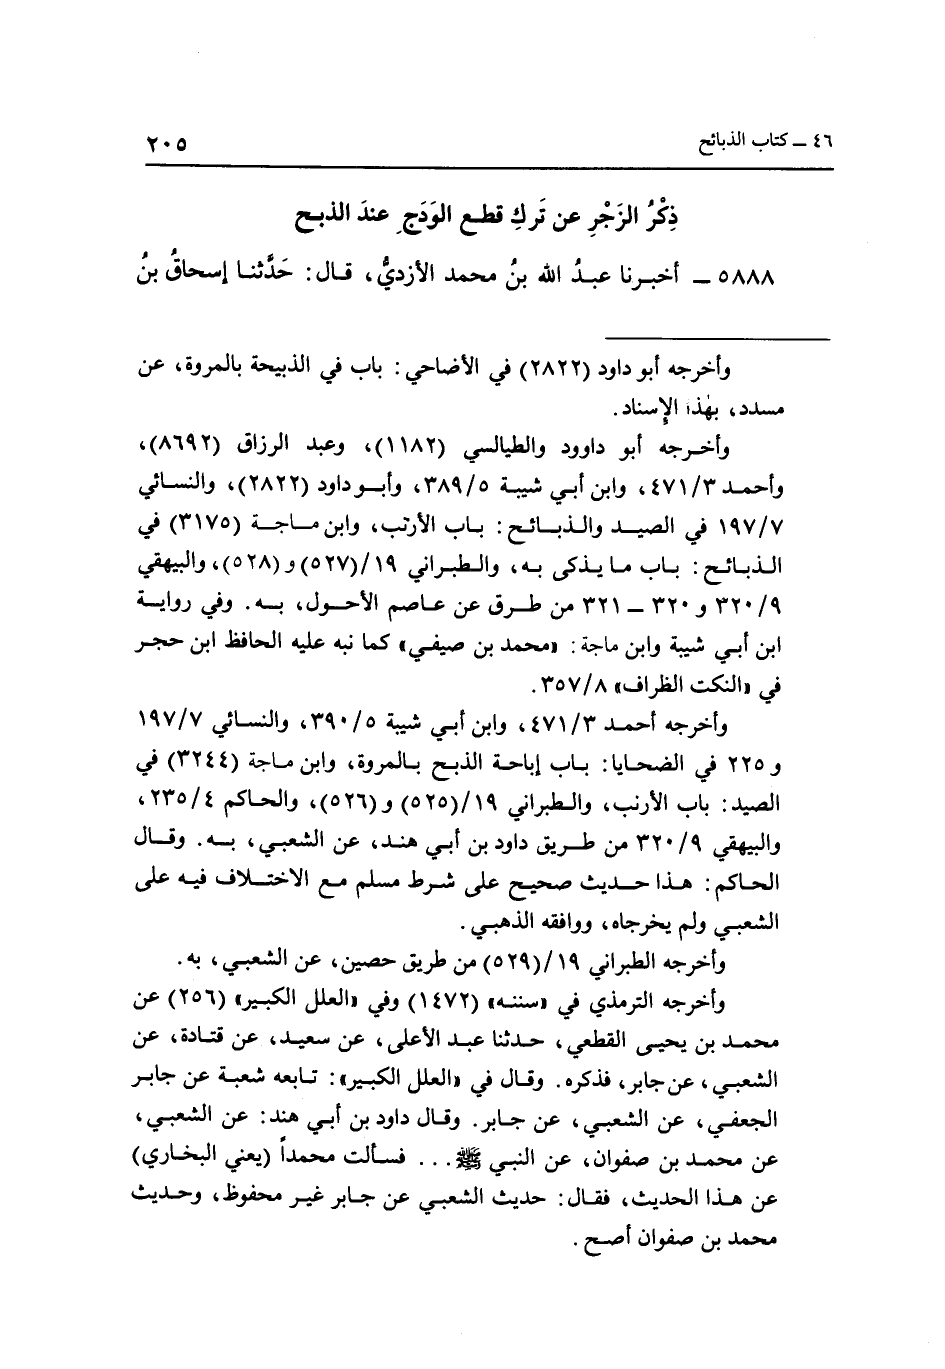 ٤٦ ــ كتاب الذبائح ٢٠٥
ذِكْرُ الزَجْرِ عن تَركِ قطـع الوَدَجِ عندَ الذبـح
٥٨٨٨ ــ أخبـرنا عبـدُ الله بنُ محمد الأزديُّ، قـال: حَدَّثنـا إسحاقُ بنُ
وأخرجه أبو داود (٢٨٢٢) في الأضاحي: باب في الذبيحة بالمروة، عن
مسدد، بهٰذا الإِسناد.
وأخـرجه أبو داوود والطيالسي (١١٨٢)، وعبد الرزاق (٨٦٩٢)،
وأحمـد ٤٧١/٣، وابن أبـي شيبة ٣٨٩/٥، وأبـو داود (٢٨٢٢)، والنسـائي
١٩٧/٧ في الصيـد والـذبـائـح: بـاب الأرنب، وابن مـاجـة (٣١٧٥) في
الـذبـائـح: بـاب مـا يـذكى بـه، والطبـراني ١٩/(٥٢٧) و (٥٢٨)، والبيهقي
٣٢٠/٩ و ٣٢٠ ــ ٣٢١ من طـرق عن عـاصم الأحـول، بـه. وفي روايـة
ابن أبـي شيبة وابن ماجة: «محمد بن صيفي» كما نبه عليه الحافظ ابن حجر
في «النكت الظراف» ٣٥٧/٨.
وأخرجه أحمـد ٤٧١/٣، وابن أبـي شيبة ٣٩٠/٥، والنسائي ١٩٧/٧
و ٢٢٥ في الضحايا: بـاب إباحـة الذبـح بـالمروة، وابن مـاجة (٣٢٤٤) في
الصيد: باب الأرنب، والـطبراني ١٩/(٥٢٥) و (٥٢٦)، والحاكم ٢٣٥/٤،
والبيهقي ٣٢٠/٩ من طـريق داود بن أبي هنـد، عن الشعبـي، بـه. وقـال
الحـاكم: هـذا حـديث صحيح على شـرط مسلم مـع الاختـلاف فيـه على
الشعبـي ولم يخرجاه، ووافقه الذهبـي.
وأخرجه الطبراني ١٩/(٥٢٩) من طريق حصين، عن الشعبـي، به.
وأخرجه الترمذي في «سننـه» (١٤٧٢) وفي «العلل الكبيـر» (٢٥٦) عن
محمـد بن يحيـى القطعي، حـدثنا عبـد الأعلى، عن سعيـد، عن قتـادة، عن
الشعبـي، عن جابر، فذكره. وقـال في «العلل الكبير»: تـابعه شعبـة عن جابـر
الجعفـي، عن الشعبـي، عن جـابر. وقـال داود بن أبـي هند: عن الشعبـي،
عن محمـد بن صفوان، عن النبـي ﷺ... فسألت محمداً (يعني البخـاري)
عن هـذا الحديث، فقـال: حديث الشعبـي عن جـابر غيـر محفوظ، وحـديث
محمد بن صفوان أصـح.